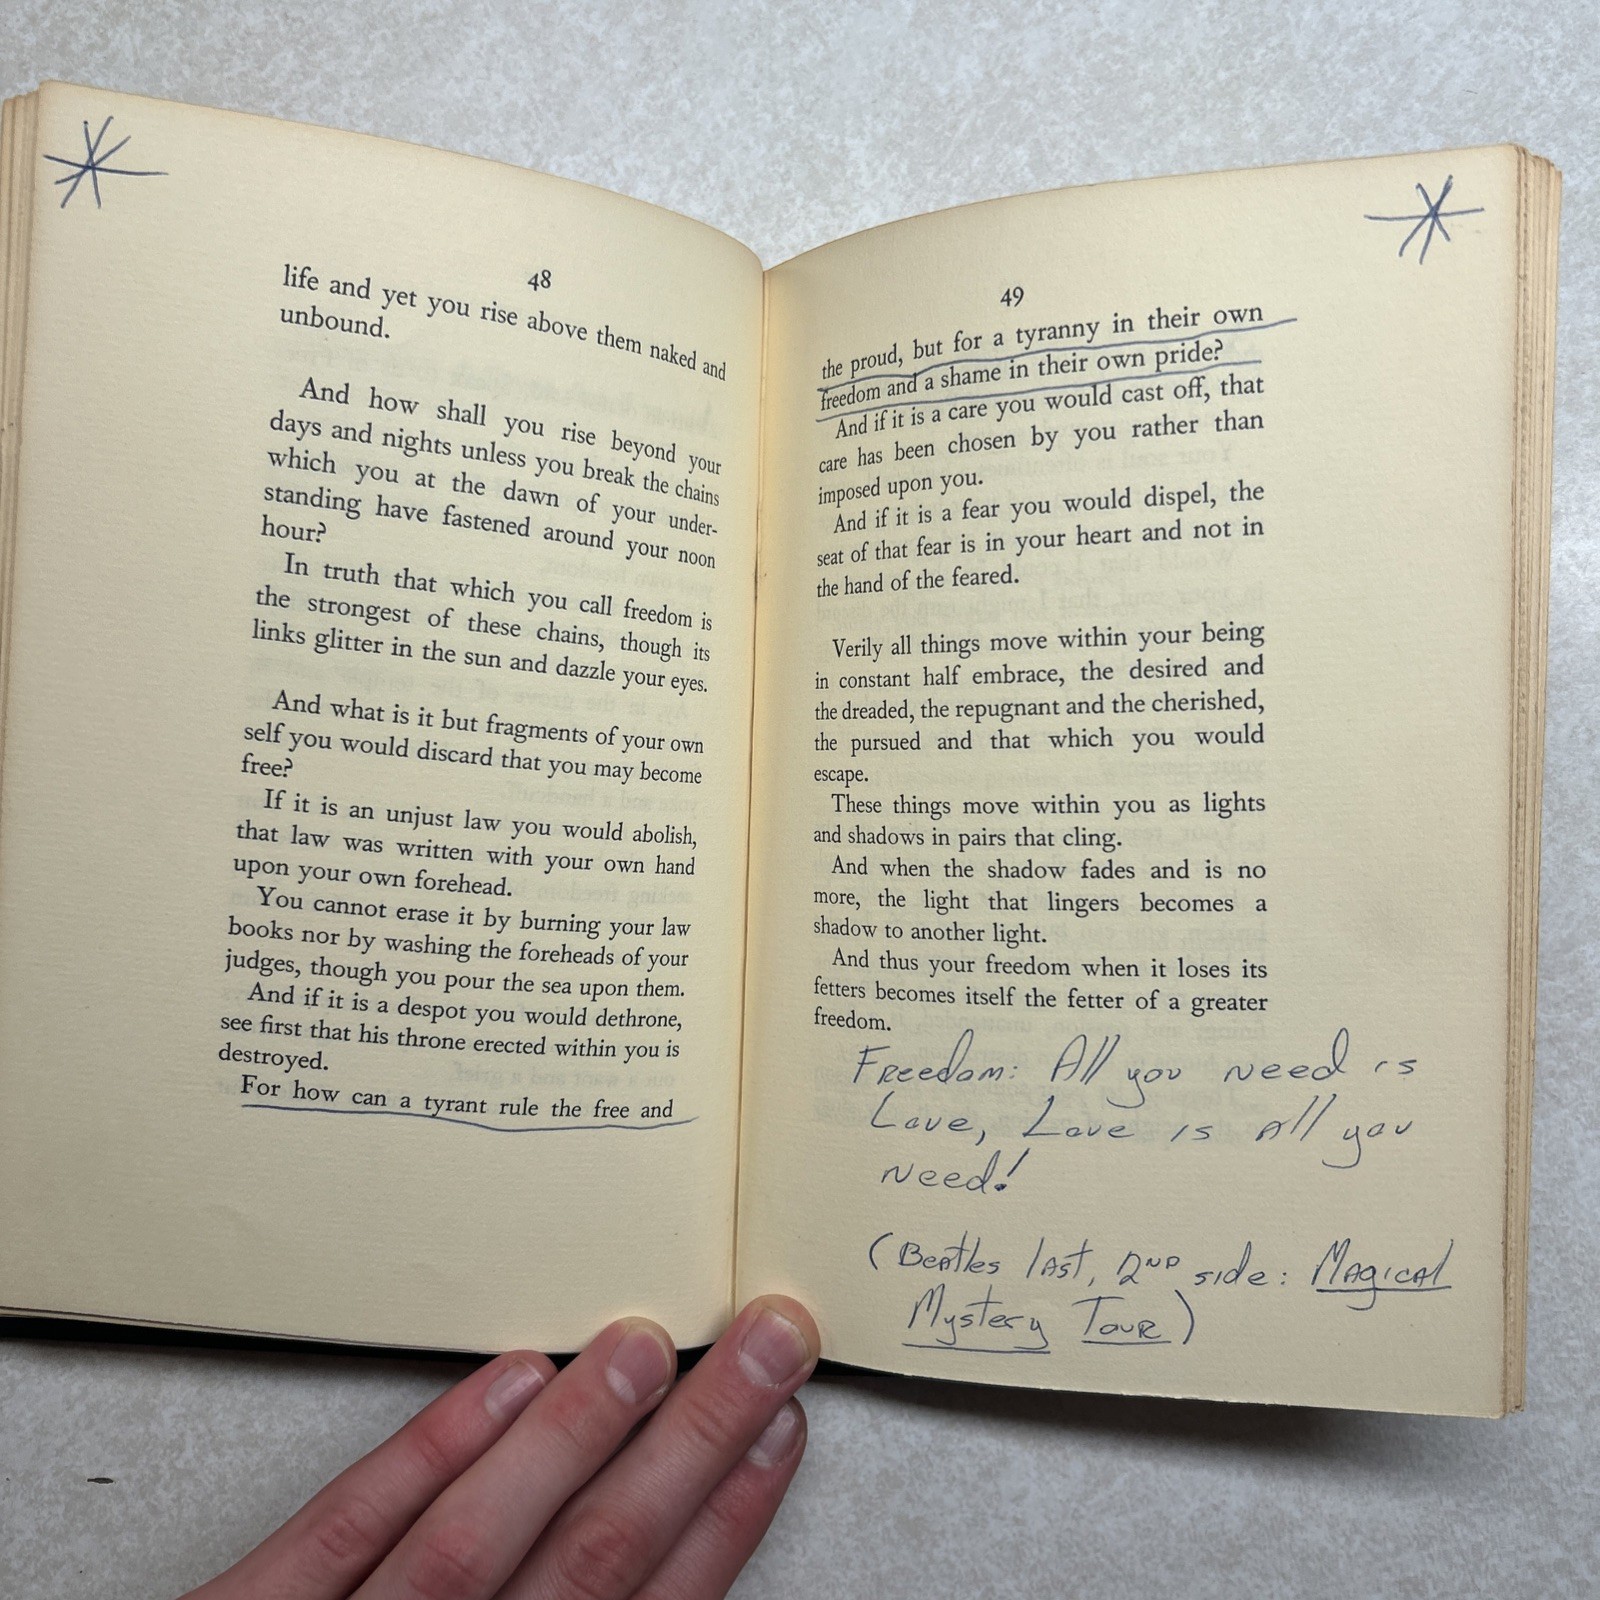 48
life and yet you rise above them naked and
unbound.
And how shall you rise beyond your
days and nights unless you break the chains
which you at the dawn of your under-
standing have fastened around your noon
hour?
In truth that which you call freedom is
the strongest of these chains, though its
links glitter in the sun and dazzle your eyes.
And what is it but fragments of your own
self you would discard that you may become
free?
If it is an unjust law you would abolish,
that law was written with your own hand
upon your own forehead.
You cannot erase it by burning your law
books nor by washing the foreheads of your
judges, though you pour the sea upon them.
And if it is a despot you would dethrone,
see first that his throne erected within you is
destroyed.
For how can a tyrant rule the free and
49
the proud, but for a tyranny in their own
freedom and a shame in their own pride?
And if it is a care you would cast off, that
care has been chosen by you rather than
imposed upon you.
And if it is a fear you would dispel, the
seat of that fear is in your heart and not in
the hand of the feared.
Verily all things move within your being
in constant half embrace, the desired and
the dreaded, the repugnant and the cherished,
the pursued and that which you would
escape.
These things move within you as lights
and shadows in pairs that cling.
And when the shadow fades and is no
more, the light that lingers becomes a
shadow to another light.
And thus your freedom when it loses its
fetters becomes itself the fetter of a greater
freedom.
Freedom: All you need is
Love, Love is all you
need!
(Beatles last, 2ND side: Magical
Mystery Tour)